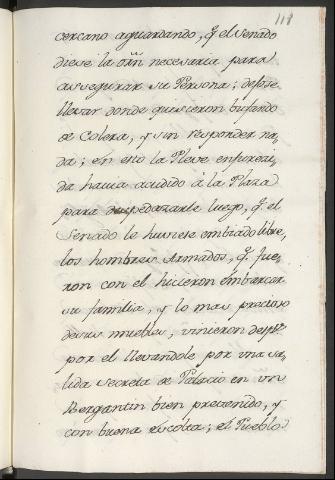 118
cercano aguardando, q̃ el Senado
diese la orñ necesaria para
assegurar su Persona; dejose
llevar donde quisieron bufando
de Colera, y sin responder na,
da; en esto la Pleve enfureci,
da havia acudido â la Plaza
para despedazarle luego, q̃ el
Senado le huviese embiado libre,
los hombres Armados, q̃ fue,
ron con el hicieron embarcar
su familia, y lo mas precioso
de sus muebles, vinieron desps
por el llevandole por una sa,
lida secreta de Palacio en un
Bergantin bien prevenido, y
con buena escolta; el Pueblo